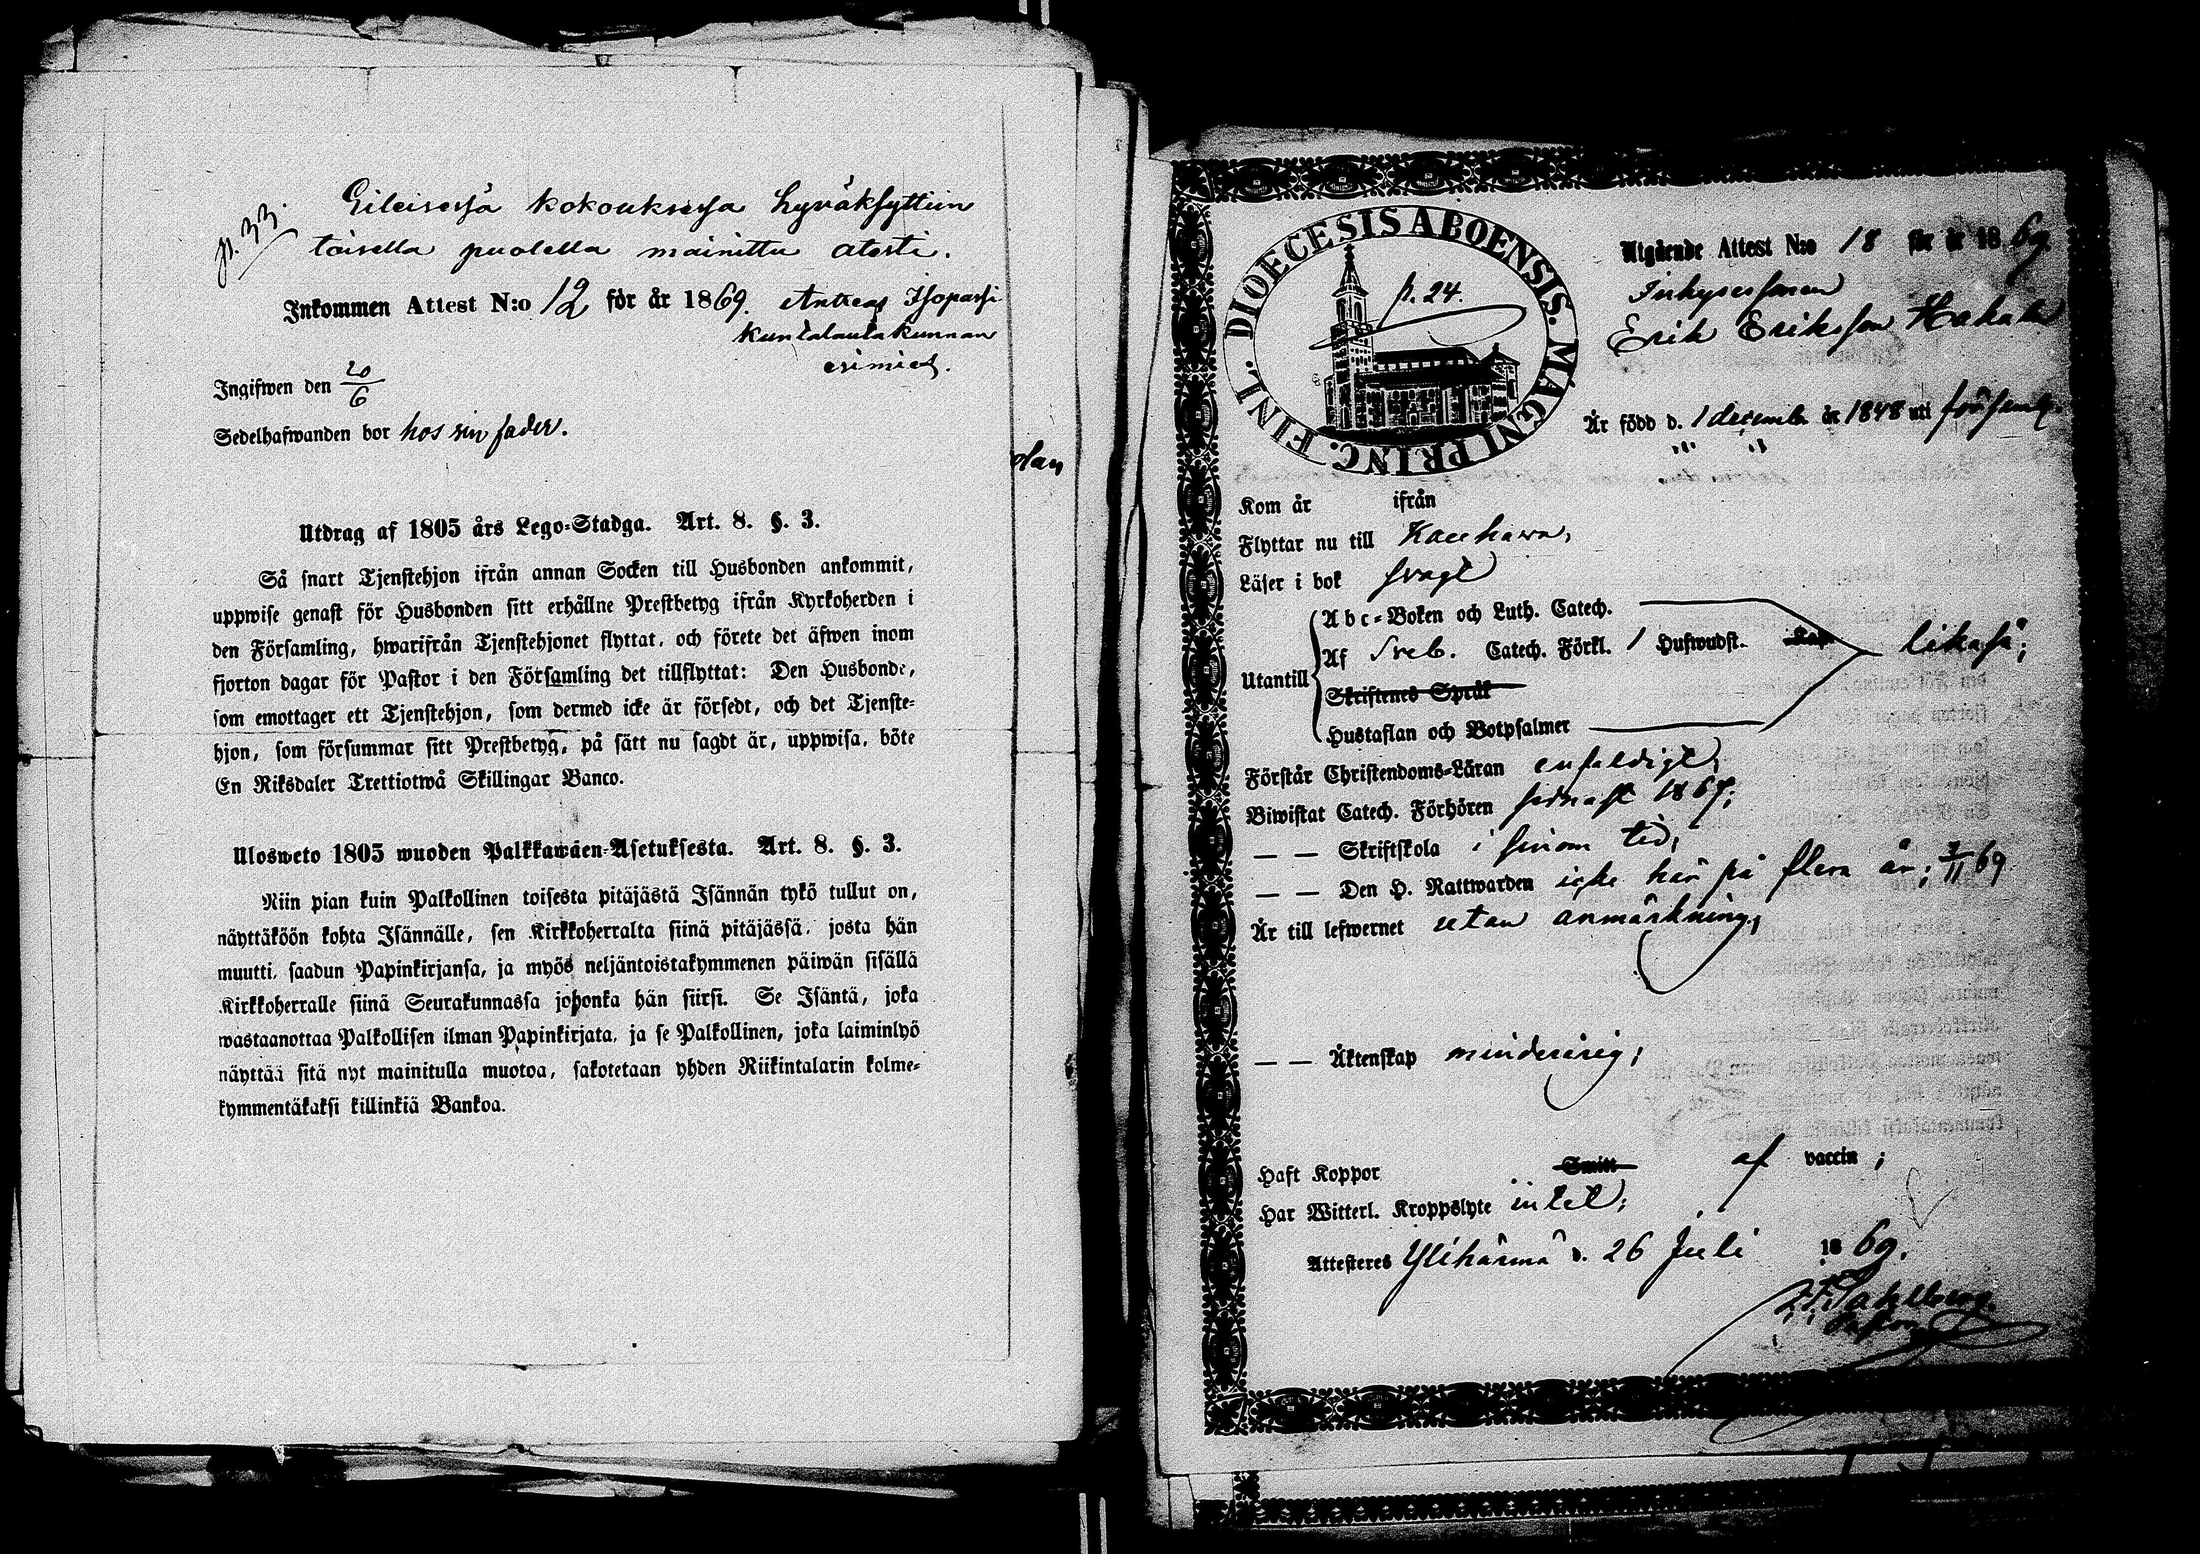 p. 33.
Eileisessä kokouksessa hyväksyttiin
toisella puolella mainittu atesti.
Inkommen Attest N:o 12 för år 1869. Antreas Isoparsi
kuntalautakunnan
esimies.
Ingifwen den 20/6
Sedelhafwanden bor hos sin fader.
Utdrag af 1805 års Lego-Stadga. Art. 8. §. 3.
Så snart Tjenstehjon ifrån annan Socken till Husbonden ankommit,
uppwise genast för Husbonden sitt erhållne Prestbetyg ifrån Kyrkoherden i
den Församling, hwarifrån Tjenstehjonet flyttat, och förete det äfwen inom
fjorton dagar för Pastor i den Församling det tillflyttat: Den Husbonde,
som emottager ett Tjenstehjon, som dermed icke är försedt, och det Tjenste-
hjon, som försummar sitt Prestbetyg, på sätt nu sagdt är, uppwisa, böte
En Riksdaler Trettiotwå Skillingar Banco.
Ulosweto 1805 wuoden Palkkawäen-Asetuksesta. Art. 8. §. 3.
Niin pian kuin Palkollinen toisesta pitäjästä Isännän tykö tullut on,
näyttäköön kohta Isännälle, sen Kirkkoherralta siinä pitäjässä, josta hän
muutti, saadun Papinkirjansa, ja myös neljäntoistakymmenen päiwän sisällä
Kirkkoherralle siinä Seurakunnassa johonka hän siirsi. Se Isäntä, joka
wastaanottaa Palkollisen ilman Papinkirjata, ja se Palkollinen, joka laiminlyö
näyttää sitä nyt mainitulla muotoa, sakotetaan yhden Riikintalarin kolme-
kymmentäkaksi killinkiä Bankoa.
DIOECESIS ABOENSIS. MAGNI PRINC. FINL.
p. 24.
Utgående Attest N:o 18 för år 1869.
Inhysessonen
Erik Eriksson Hakala
Är född d. 1 decemb. år 1848 uti förs
Kom år ifrån
Flyttar nu till Kauhava,
Läser i bok svagt
Utantill
Abc-Boken och Luth. Catech.
Af Sveb. Catech. Förkl. 1 Hufwudst. likaså;
Skriftenes Språk
Hustaflan och Botpsalmer
Förstår Christendoms-Läran enfaldigt;
Biwistat Catech. Förhören sednast 1867;
— — Skriftskola i sinom tid;
— — Den H. Nattwarden icke här på flera år; 7/11 69
Är till lefwernet utan anmärkning;
— — Äktenskap minderårig;
Haft Koppor Smitt af vaccin;
Har Witterl. Kroppslyte intet;
Attesteres Ylihärmä d. 26 Juli 1869.